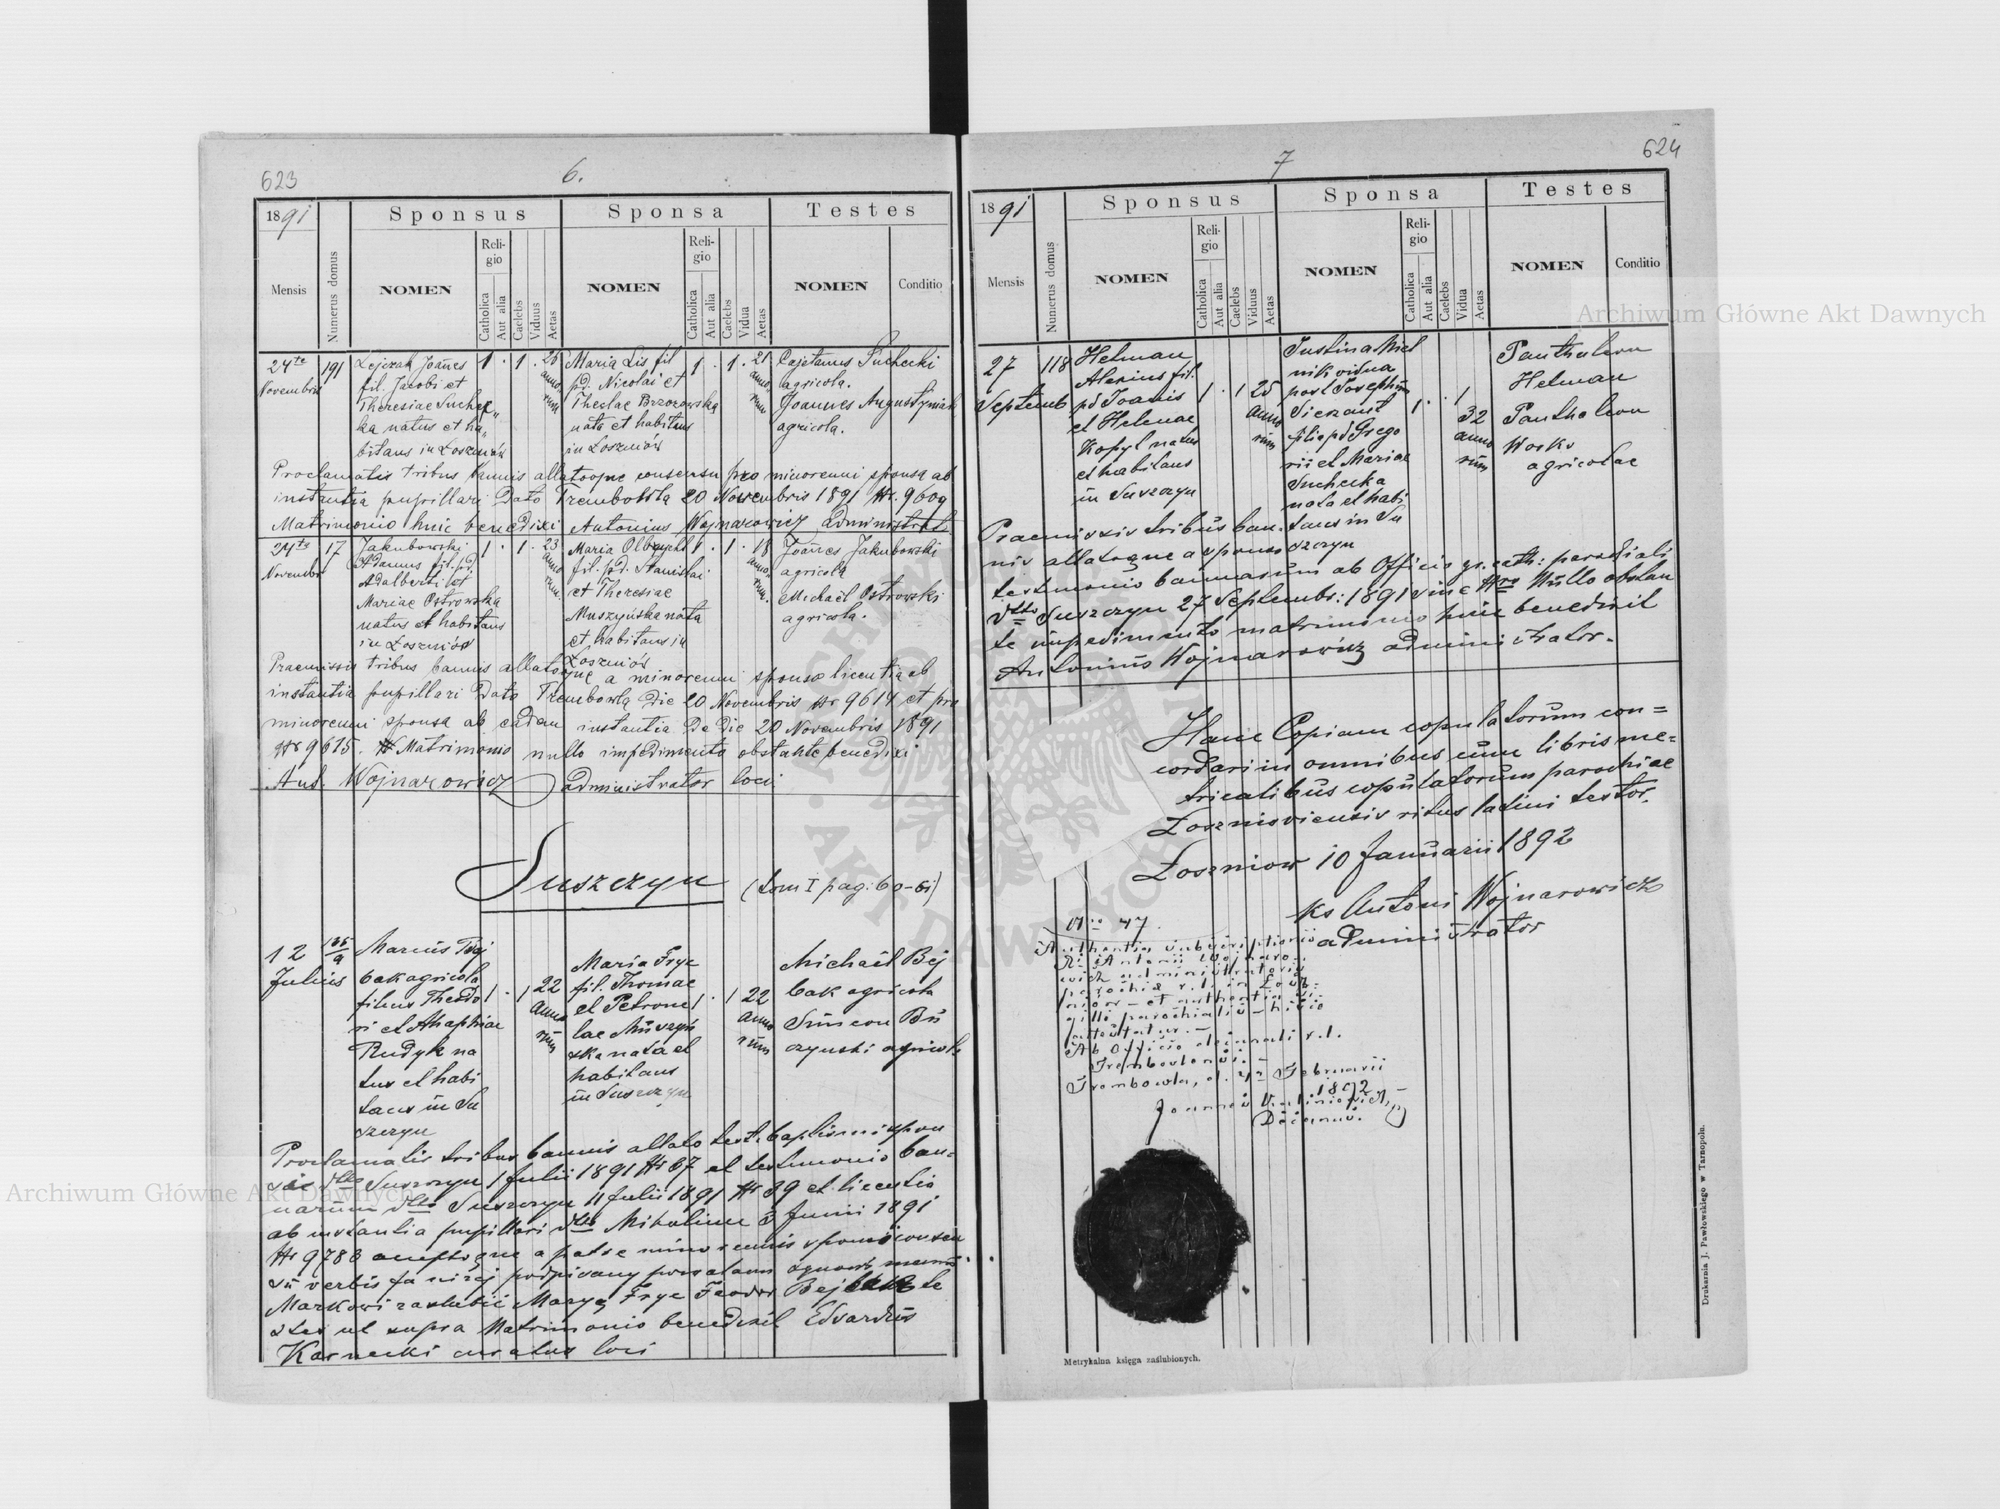 623
6.
1891
Sponsus
Sponsa
Testes
Mensis
Numerus domus
NOMEN
Religio
Catholica
Aut alia
Caelebs
Viduus
Aetas
NOMEN
Religio
Catholica
Aut alia
Caelebs
Vidua
Aetas
NOMEN
Conditio
24te
Novembris
191
Lejczak Joannes
fil. Jacobi et
Theresiae Suchec„
ka natus et ha„
bitans in Łoszniów
1 . 1 . 26
anno
rum
Maria Lis fil
pd. Nicolai et
Theclae Brzozowska
nata et habitans
in Łoszniów
1 . 1 . 21
anno
rum
Cajetanus Suchecki
agricola.
Joannes Augustyniak
agricola.
Proclamatis tribus bannis allatoque consensu pro minorenni sponsa ab
instantia pupillari Dato Trembowla 20 Novembris 1891 Nr. 9609
Matrimonio huic benedixi Antonius Wojnarowicz Administrat
24te
Novembr
17
Jakubowski
Adamus fil. pd.
Adalberti et
Mariae Ostrowska
natus et habitans
in Łoszniów
1 . 1 . 23
anno
rum.
Maria Olbrycht
fil. pd. Stanislai
et Theresiae
Muszyńska nata
et habitans in
Łoszniów
1 . 1 . 18
anno
rum.
Joannes Jakubowski
agricola
Michael Ostrowski
agricola.
Praemissis tribus bannis allatoque a minorenni sponso licentia ab
instantia pupillari Dato Trembowla Die 20 Novembris Nr 9614 et pro
minorenni sponsa ab eadem instantia De Die 20 Novembris 1891
Nr 9615. Matrimonio nullo impedimento obstante benedixi
Ant. Wojnarowicz administrator loci.
Suszczyn (tom I pag: 60-61)
12
Julius
Marcus Bej
bak agricola
filius Theodo
ri et Ahaphiae
Rudyk na
tus et habi
tans in Su
szczyn
1 . 1 22
anno
rum
Maria Fryc
fil. Thomae
et Petronel
lae Muszyń
ska nata et
habitans
in Suszczyn
1 . 1 22
anno
rum
Michaël Bej
bak agricola
Simeon Bu
czynski agricola
Proclamatis tribus bannis allato test. baptismi spon
si dtto Suszczyn 1 Julii 1891 Nr 67 et testimonio ban-
narum dtto Suszczyn 11 Julii 1891 Nr 39 et licentia
ab instantia pupillari dtto Mikulince 3 Junii 1891
Nr 9788 acceptoque a patre minorennis sponsi consen
su verbis Ja niżej podpisany
Markowi zaślubić Maryę Fryc Feodor Bejbak te
stes ut supra Matrimonio benedixit Edvardus
Karnecki curatus loci
624
7
1891
Sponsus
Sponsa
Testes
Mensis
Numerus domus
NOMEN
Religio
Catholica
Aut alia
Caelebs
Viduus
Aetas
NOMEN
Religio
Catholica
Aut alia
Caelebs
Vidua
Aetas
NOMEN
Conditio
27
Septemb
118
Helman
Alexius fil.
pd Joanis
et Helenae
Kopyl natus
et habitans
in Suszczyn
1 . 1 25
anno
rum
Justina Miel
nik vidua
post Josephum
Sierzant
filia pd Grego
rii et Mariae
Suchecka
nata et habi
tans in Su
szczyn
1 . . 1
32
anno
rum
Panthaleon
Helman
Panthaleon
Worko
agricolae
Praemissis tribus ban-
nis allatoque a sponso
testimonio bannarum ab Officio gr. cath: parochiali
dtto Suszczyn 27 Septembr: 1891 sine Nro Nullo obstan
te impedimento matrimonio huic benedixit
Antonius Wojnarowicz administrator.
Hanc Copiam copulatorum con=
cordari in omnibus cum libris me=
tricalibus copulatorum parochiae
Łoszniowiensis ritus latini testor.
Łoszniow 10 Januarii 1892
ks Antoni Wojnarowicz
administrator
Nro 47.
Authentia subscriptionis
R. Antonii Wojnaro-
wicz administratoris
parochiae r. l. in Łosz-
niow - et authentia si-
gilli parochialis - hisce
attestatur. -
Ab Officio decanali r. l.
Trembowlensi. -
Trembowla, d. Februarii
1892 -
Joannes
Decanus.
Metrykalna księga zaślubionych.
Drukarnia J. Pawłowskiego w Tarnopolu.
Archiwum Główne Akt Dawnych
Archiwum Główne Akt Dawnych
ARCHIWUM
AKT DAWNYCH